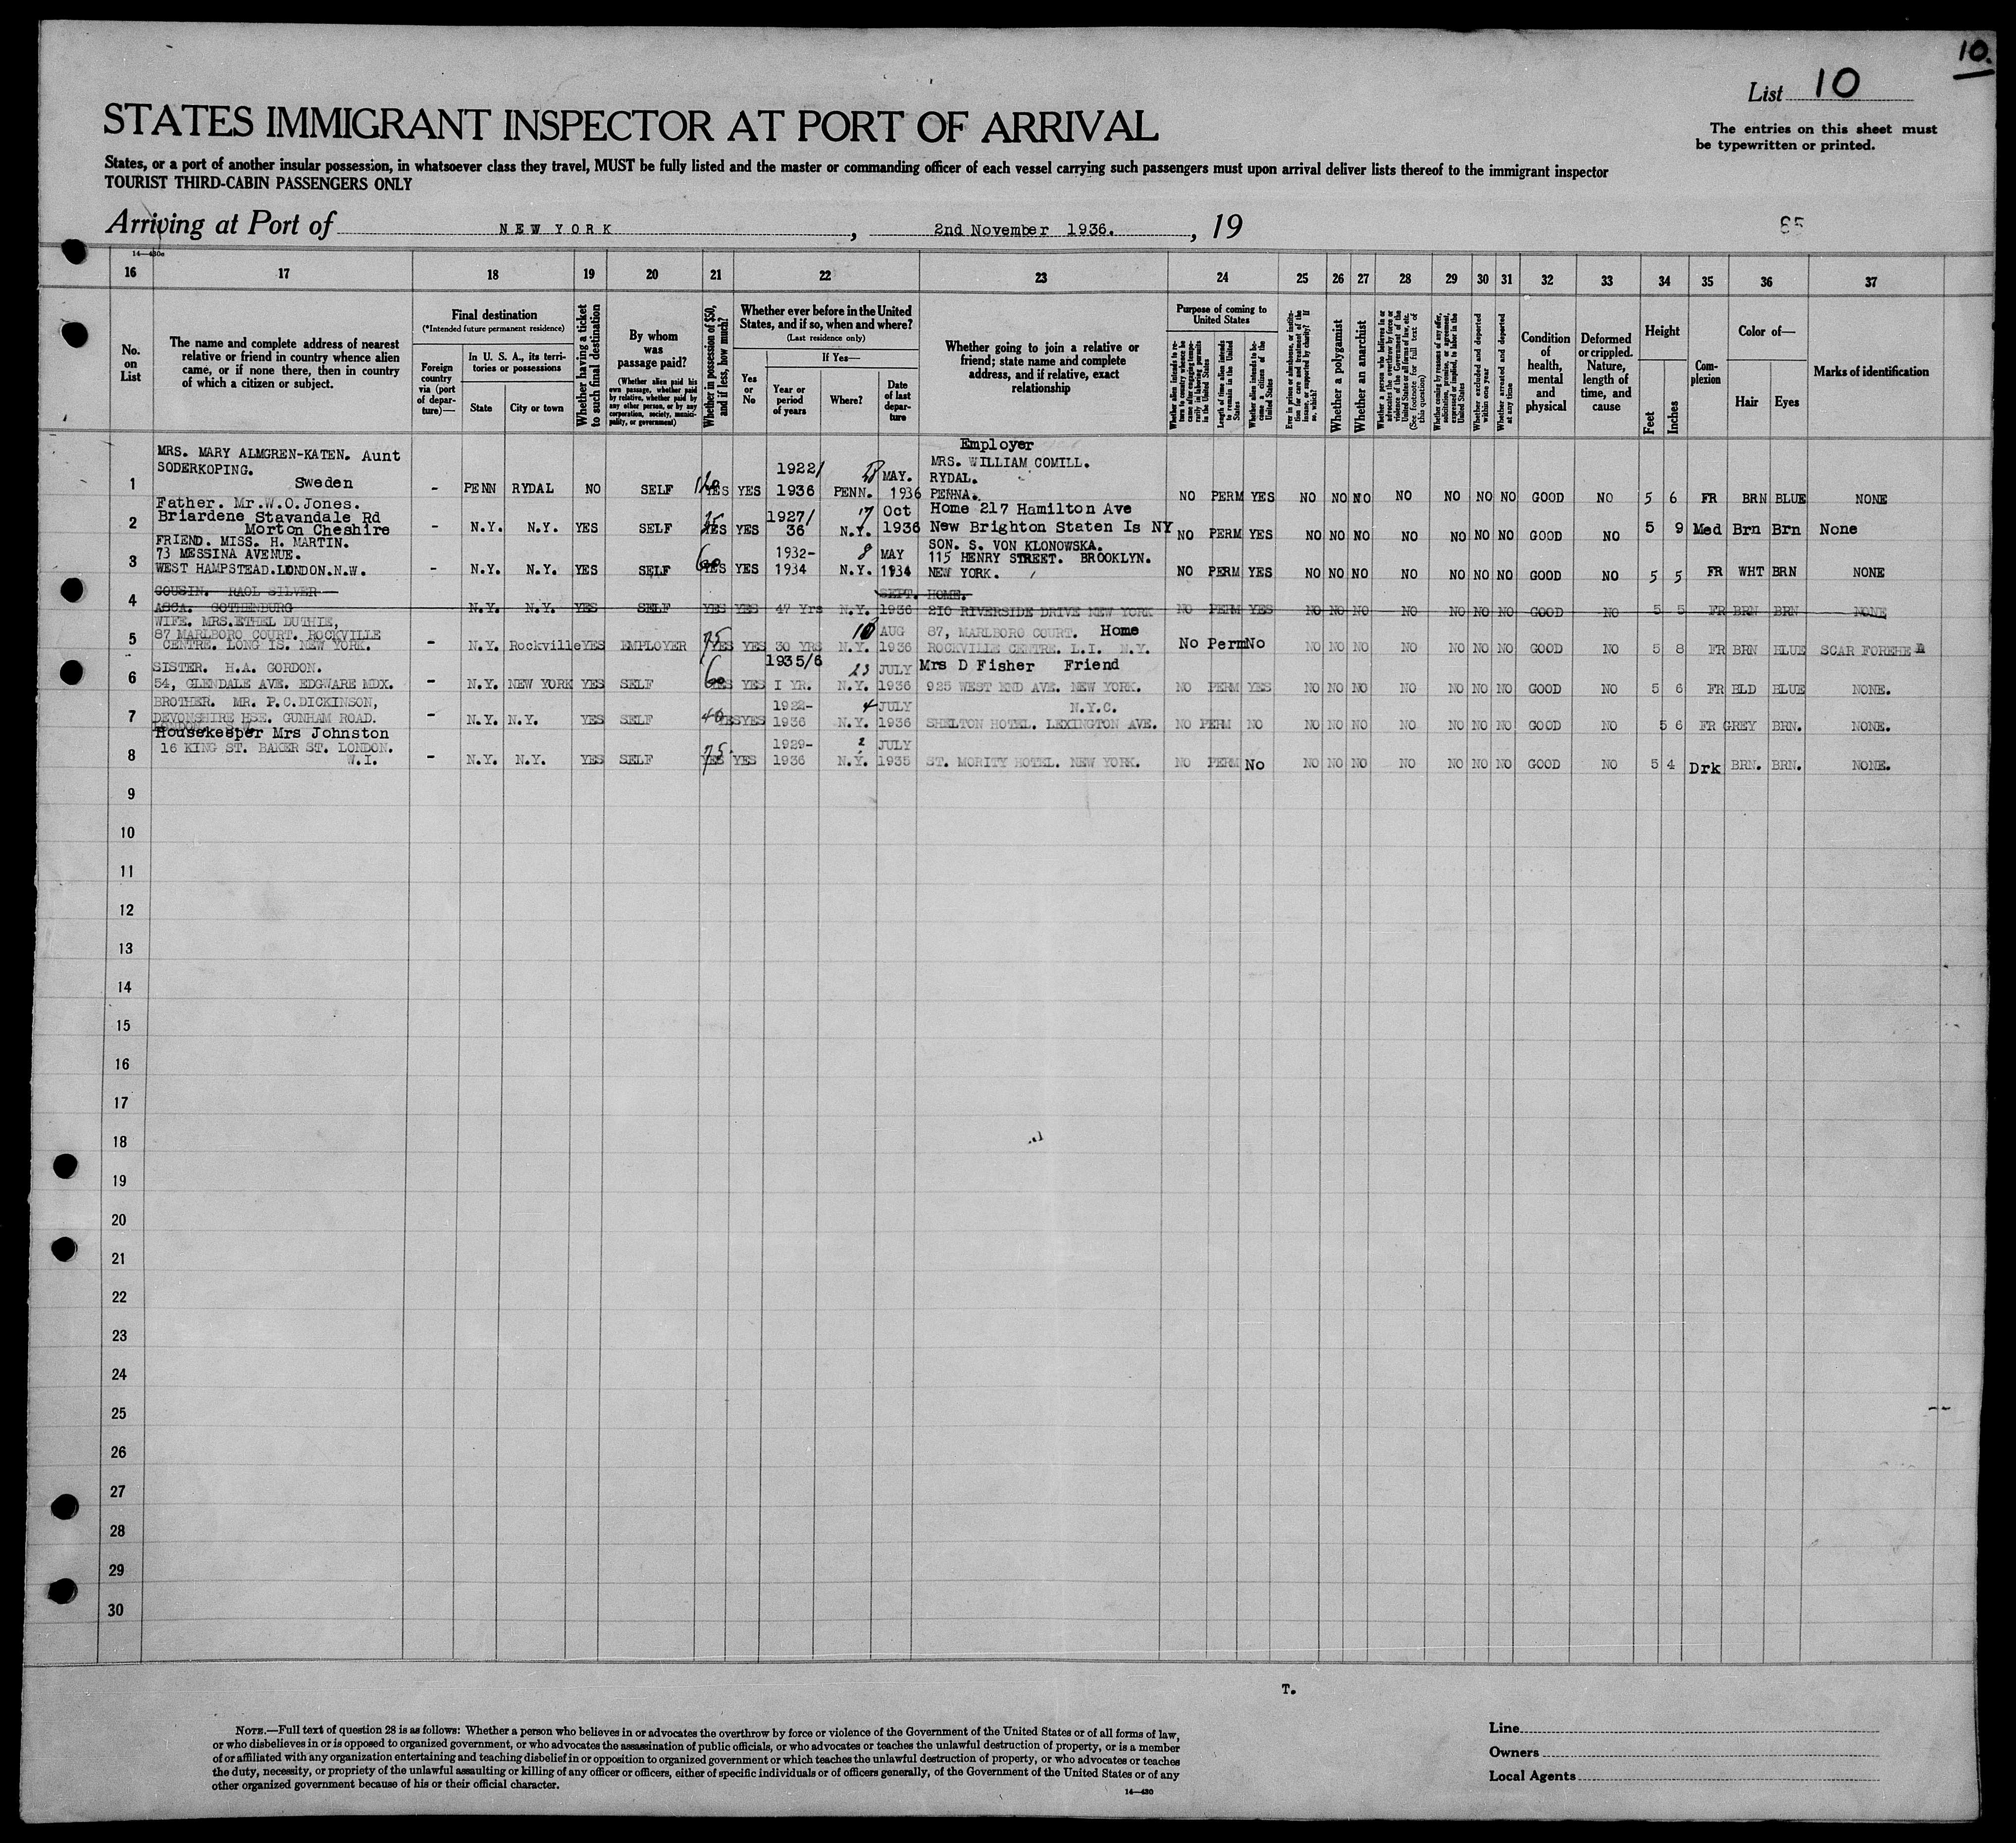 10.
List 10
The entries on this sheet must
be typewritten or printed.
STATES IMMIGRANT INSPECTOR AT PORT OF ARRIVAL
States, or a port of another insular possession, in whatsoever class they travel, MUST be fully listed and the master or commanding officer of each vessel carrying such passengers must upon arrival deliver lists thereof to the immigrant inspector
TOURIST THIRD-CABIN PASSENGERS ONLY
Arriving at Port of NEW YORK, 2nd November 1936., 19
65
14—430a
16 17 18 19 20 21 22 23 24 25 26 27 28 29 30 31 32 33 34 35 36 37
No. on List
The name and complete address of nearest relative or friend in country whence alien came, or if none there, then in country of which a citizen or subject.
Final destination
(*Intended future permanent residence)
Foreign country via (port of departure)—
In U. S. A., its territories or possessions
State
City or town
Whether having a ticket to such final destination
By whom was passage paid?
(Whether alien paid his own passage, whether paid by relative, whether paid by any other person, or by any corporation, society, municipality, or government)
Whether in possession of $50, and if less, how much?
Whether ever before in the United States, and if so, when and where?
(Last residence only)
Yes or No
If Yes—
Year or period of years
Where?
Date of last departure
Whether going to join a relative or friend; state name and complete address, and if relative, exact relationship
Purpose of coming to United States
Whether alien intends to return to country whence he came after engaging temporarily in laboring pursuits in the United States
Length of time alien intends to remain in the United States
Whether alien intends to become a citizen of the United States
Ever in prison or almshouse, or institution for care and treatment of the insane, or supported by charity? If so, which?
Whether a polygamist
Whether an anarchist
Whether a person who believes in or advocates the overthrow by force or violence of the Government of the United States or of all forms of law, etc. (See footnote for full text of this question)
Whether coming by reasons of any offer, solicitation, promise, or agreement, expressed or implied, to labor in the United States
Whether excluded and deported within one year
Whether arrested and deported at any time
Condition of health, mental and physical
Deformed or crippled. Nature, length of time, and cause
Height
Feet
Inches
Complexion
Color of—
Hair
Eyes
Marks of identification
1 MRS. MARY ALMGREN-KATEN. Aunt
SODERKOPING.
Sweden
- PENN RYDAL NO SELF YES YES 1922/ 1936 PENN. MAY. 1936
Employer
MRS. WILLIAM COMILL.
RYDAL.
PENNA.
NO PERM YES NO NO NO NO NO NO NO GOOD NO 5 6 FR BRN BLUE NONE
2 Father. Mr.W.O.Jones.
Briardene Stavandale Rd
Morton Cheshire
- N.Y. N.Y. YES SELF YES YES 1927/ 36 17 N.Y. Oct 1936
Home 217 Hamilton Ave
New Brighton Staten Is NY
NO PERM YES NO NO NO NO NO NO NO GOOD NO 5 9 Med Brn Brn None
3 FRIEND. MISS. H. MARTIN.
73 MESSINA AVENUE.
WEST HAMPSTEAD.LONDON.N.W.
- N.Y. N.Y. YES SELF 60 YES YES 1932- 1934 8 N.Y. MAY 1934
SON. S. VON KLONOWSKA.
115 HENRY STREET. BROOKLYN.
NEW YORK.
NO PERM YES NO NO NO NO NO NO NO GOOD NO 5 5 FR WHT BRN NONE
4 COUSIN. RAOL SILVER
ASCA. GOTHENBURG
N.Y. N.Y. YES SELF YES YES 47 Yrs N.Y. SEPT. 1936
HOME.
210 RIVERSIDE DRIVE NEW YORK
NO PERM YES NO NO NO NO NO NO NO GOOD NO 5 5 FR BRN BRN NONE
5 WIFE. MRS.ETHEL DUTHIE,
87 MARLBORO COURT. ROCKVILLE
CENTRE. LONG IS. NEW YORK.
- N.Y. Rockville YES EMPLOYER 75 YES YES 30 YRS N.Y. AUG 1936
87, MARLBORO COURT. Home
ROCKVILLE CENTRE. L.I. N.Y.
No Perm No NO NO NO NO NO NO NO GOOD NO 5 8 FR BRN BLUE SCAR FOREHE
6 SISTER. H.A. GORDON.
54, GLENDALE AVE. EDGWARE MDX.
- N.Y. NEW YORK YES SELF 60 YES YES 1935/6 I YR. 23 N.Y. JULY 1936
Mrs D Fisher Friend
925 WEST END AVE. NEW YORK.
NO PERM YES NO NO NO NO NO NO NO GOOD NO 5 6 FR BLD BLUE NONE.
7 BROTHER. MR. P.C.DICKINSON,
DEVONSHIRE HSE. GUNHAM ROAD.
LONDON. S.W.
- N.Y. N.Y. YES SELF 40 YES YES 1922- 1936 4 N.Y. JULY 1936
N.Y.C.
SHELTON HOTEL. LEXINGTON AVE.
NO PERM NO NO NO NO NO NO NO NO GOOD NO 5 6 FR GREY BRN. NONE.
8 Housekeeper Mrs Johnston
16 KING ST. BAKER ST. LONDON.
W.I.
- N.Y. N.Y. YES SELF 75. YES YES 1929- 1936 2 N.Y. JULY 1935
ST. MORITY HOTEL. NEW YORK.
NO PERM No NO NO NO NO NO NO NO GOOD NO 5 4 Drk BRN. BRN. NONE.
9
10
11
12
13
14
15
16
17
18
19
20
21
22
23
24
25
26
27
28
29
30
T.
NOTE.—Full text of question 28 is as follows: Whether a person who believes in or advocates the overthrow by force or violence of the Government of the United States or of all forms of law,
or who disbelieves in or is opposed to organized government, or who advocates the assassination of public officials, or who advocates or teaches the unlawful destruction of property, or is a member
of or affiliated with any organization entertaining and teaching disbelief in or opposition to organized government or which teaches the unlawful destruction of property, or who advocates or teaches
the duty, necessity, or propriety of the unlawful assaulting or killing of any officer or officers, either of specific individuals or of officers generally, of the Government of the United States or of any
other organized government because of his or their official character.
14—430
Line
Owners
Local Agents